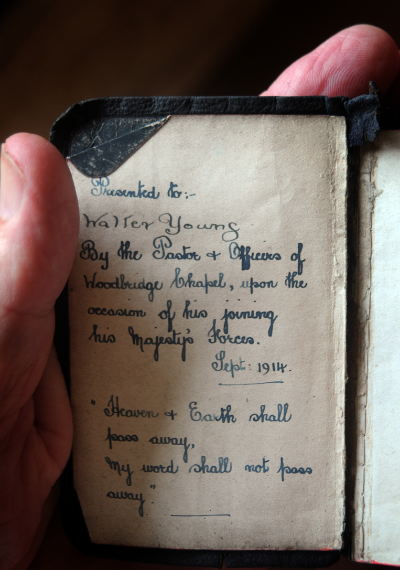 Presented to:-
Walter Young
By the Pastor & Officers of
Woodbridge Chapel, upon the
occasion of his joining
his Majesty's Forces.
Sept: 1914.
"Heaven & Earth shall
pass away,
My word shall not pass
away."